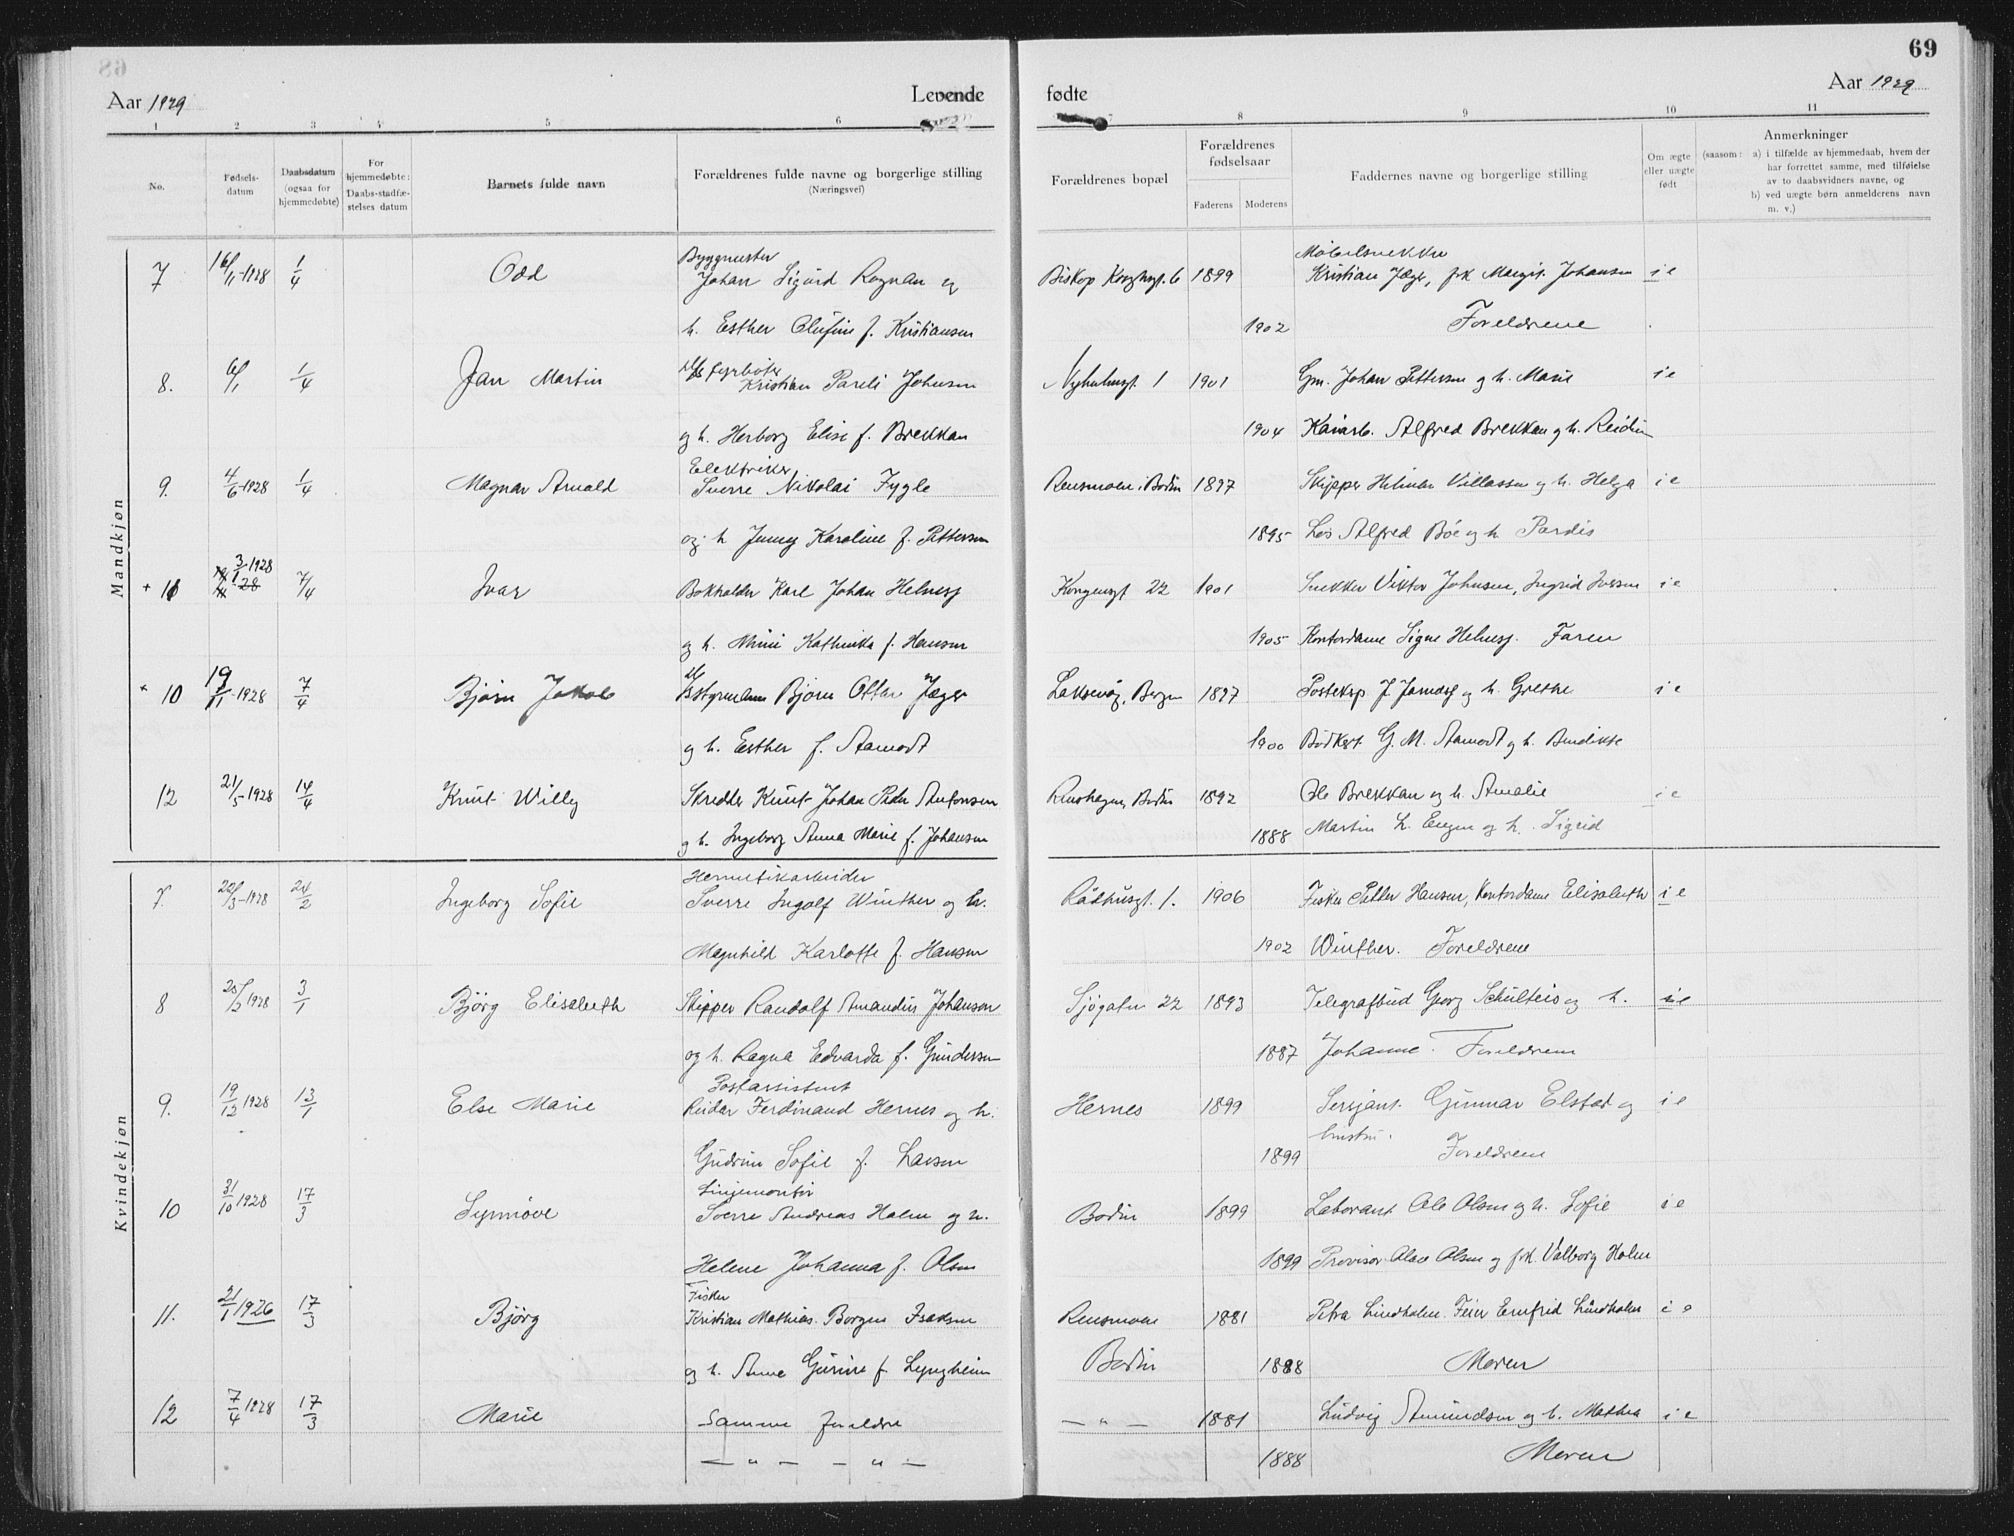 69
Aar 1929
Levende
fødte
Aar 1929
1 2 3 4 5 6 7 8 9 10 11
No.
Fødsels-
datum
Daabsdatum
(ogsaa for
hjemmedøbte)
For
hjemmedøbte:
Daabs-stadfæ-
stelses datum
Barnets fulde navn
Forældrenes fulde navne og borgerlige stilling
(Næringsvei)
Forældrenes bopæl
Forældrenes
fødselsaar
Faderens Moderens
Faddernes navne og borgerlige stilling
Om ægte
eller uægte
født
Anmerkninger
(saasom: a) i tilfælde av hjemmedaab, hvem der
har forrettet samme, med tilføielse
av to daabsvidners navne, og
b) ved uægte børn anmelderens navn
m. v.)
Mandkjøn
Byggmester Møbelsnekker
7 16/11-1928 1/4 Odd Johan Sigurd Rognan og Biskop Kroghsgt. 6 1899 Kristian Jæger, frk Margit Johansen ie
h. Esther Olufine f. Kristiansen 1902 Foreldrene
8. 6/1 1/4 Jan Martin fyrbøter Kristian Pareli Johnsen Nyholmsgt. 1 1901 Gm. Johan Pettersen og h. Marie ie
og h. Herborg Elise f. Brekkan 1904 Kaiarb. Alfred Brekkan og h. Reidun
Elektriker
9. 4/6-1928 1/4 Magnar Arnold Sverre Nikolai Fygle Rensmoen, Bodin 1897 Skipper Hilmar Villassen og h. Helga ie
og h Jenny Karoline f. Pettersen 1895 Los Alfred Bøe og h. Pardis
3/1-1928
+ 11 28 7/4 Ivar Bokholder Karl Johan Helnesj Kongensgt 22 1901 Snekker Viktor Johnsen, Ingrid Iversen ie
og h. Mimi Kathinka f. Hansen 1905 Kontordame Signe Helnesj. Faren
+ 10 19/11-1928 7/4 Bjørn Jakob Styrmann Bjørn Ottar Jæger Laksevåg, Bergen 1897 Posteksp. J. Jarnæs og h. Grethe ie
og h. Esther f. Aamodt 1900 Bødkerf. G. M. Aamodt og h. Bendikte
12 21/5-1928 14/4 Knut Willy Skredder Knut Johan Peder Antonsen Renshagen, Bodin 1892 Ole Brekkan og h. Amalie ie
og h. Ingeborg Anna Marie f. Johansen 1888 Martin L. Engen og h. Sigrid
Kvindekjøn
Hermetikarbeider
7. 22/3-1928 24/2 Ingeborg Sofie Sverre Ingolf Winther og h. Rådhusgt. 1. 1906 Fisker Petter Hansen, Kontordame Elisabeth ie
Magnhild Karlotte f. Hansen 1902 Winther. Foreldrene
8 1928 3/1 Bjørg Elisabeth Skipper Randolf Amandus Johansen Sjøgaten 22 1893 Telegrafbud Georg Schulteis og h. ie
og h. Ragna Edvarda f. Gundersen 1887 Johanne. Foreldrene
Postassistent
9. 19/12 1928 13/1 Else Marie Reidar Ferdinand Hernes og h. Hernes 1899 Sersjant. Gunnar Elstad og ie
hustru.
Gudrun Sofie f. Larsen 1899 Foreldrene
Linjemontør
10 31/10 1928 17/3 Synnøve Sverre Andreas Holm og h. Bodin 1899 Laborant Ole Olsen og h. Sofie ie
Helene Johanna f. Olsen 1899 Provisor Olav Olsen og frk. Valborg Holm
Fisker
11. 21/1 1926 17/3 Bjørg Kristian Mathias Borgen Isaksen Rensmoen 1881 Petra Lindholm. Feier Ernfrid Lindholm ie
og h. Anne Gurine f. Lyngheim Bodin 1888 Moren
12 7/4 1928 17/3 Marie Samme foreldre — " — 1881 Ludvig Amundsen og h. Mathea ie
— " — — " — 1888 Moren